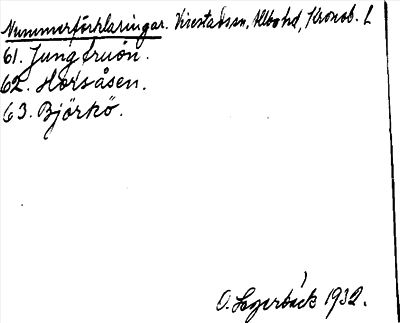 Nummerförklaringar. Virestads sn, Allbo hd, Kronob. L
61. Jungfruön.
62. Horsåsen.
63. Björkö.
O. Lagerbäck 1932.